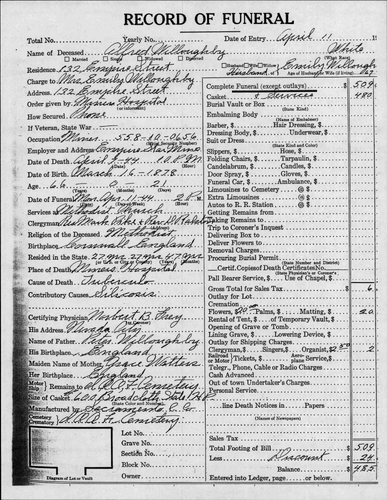 RECORD OF FUNERAL
Total No. Yearly No. Date of Entry April 11 19
Name of Deceased Alfred Willoughby White
Married Single Widowed Divorced (What Race)
Residence 132 Empire Street Husband of Emily Willough
Charge to Mrs. Emily Willoughby Age of Husband or Wife (if living) 67
Address 132 Empire Street
Order given by Miners Hospital
How Secured Phone
If Veteran, State War
Occupation Miner 558-10-0656
(Social Security Number)
Employer and Address Empire Star Mine
Date of Death April 9-44 10 P.M.
Date of Birth March 16-1878
Age 66 0 21
Date of Funeral Apr. 11-44 2 P.M.
Services at Methodist Church
Clergyman
Religion of the Deceased Methodist
Birthplace Cornwall England
Resided in the State 27 yrs 27 yrs 47 yrs
Place of Death Miners Hospital
Cause of Death Tuberculo
Contributory Causes Silicosis
Certifying Physician B. Frey
His Address Nevada City
Name of Father Peter Willoughby
His Birthplace England
Maiden Name of Mother Grace Watters
Her Birthplace England
Remains to Cemetery
Size of Casket 600 Broadcloth State
Manufactured by Sacramento C. Co
Cemetery
Lot No.
Grave No.
Section No.
Block No.
Owner
Diagram of Lot or Vault
Complete Funeral (except outlays) $ 509
Casket & Services 480
Burial Vault or Box
(State Kind)
Embalming Body
(Name of Embalmer)
Barber, $ Hair Dressing, $
Dressing Body, $ Underwear, $
Suit or Dress
(State Kind and Color)
Slippers, $ Hose, $
Folding Chairs, $ Tarpaulin, $
Candelabrum, $ Candles, $
Door Spray, $ Gloves, $
Funeral Car, $ Ambulance, $
Limousines to Cemetery @ $
Extra Limousines @ $
Autos to R. R. Station @ $
Getting Remains from
Taking Remains to
Trip to Coroner's Inquest
Delivering Box to
Deliver Flowers to
Removal Charges
Procuring Burial Permit
(State Number and District)
Certif. Copies of Death Certificates No.
Pall Bearer Service, $ Use of Chapel, $
Gross Total for Sales Tax $ 6
Outlay for Lot
Cremation
Flowers, $20.00 Palms, $ Matting, $ 20
Rental of Tent, $ of Temporary Vault, $
Opening of Grave or Tomb
Lining Grave, $ Lowering Device, $
Outlay for Shipping Charges
Clergyman, $ Singers, $ Organist, $2.00 2
Railroad Tickets, $ Aeroplane Service, $
Telegr., Phone, Cable or Radio Charges
Cash Advanced
Out of town Undertaker's Charges
Personal Service
line Death Notices in Papers
Sales Tax
Total Footing of Bill $ 509
Less Discount $ 24
Balance $ 485
Entered into Ledger, page or below.